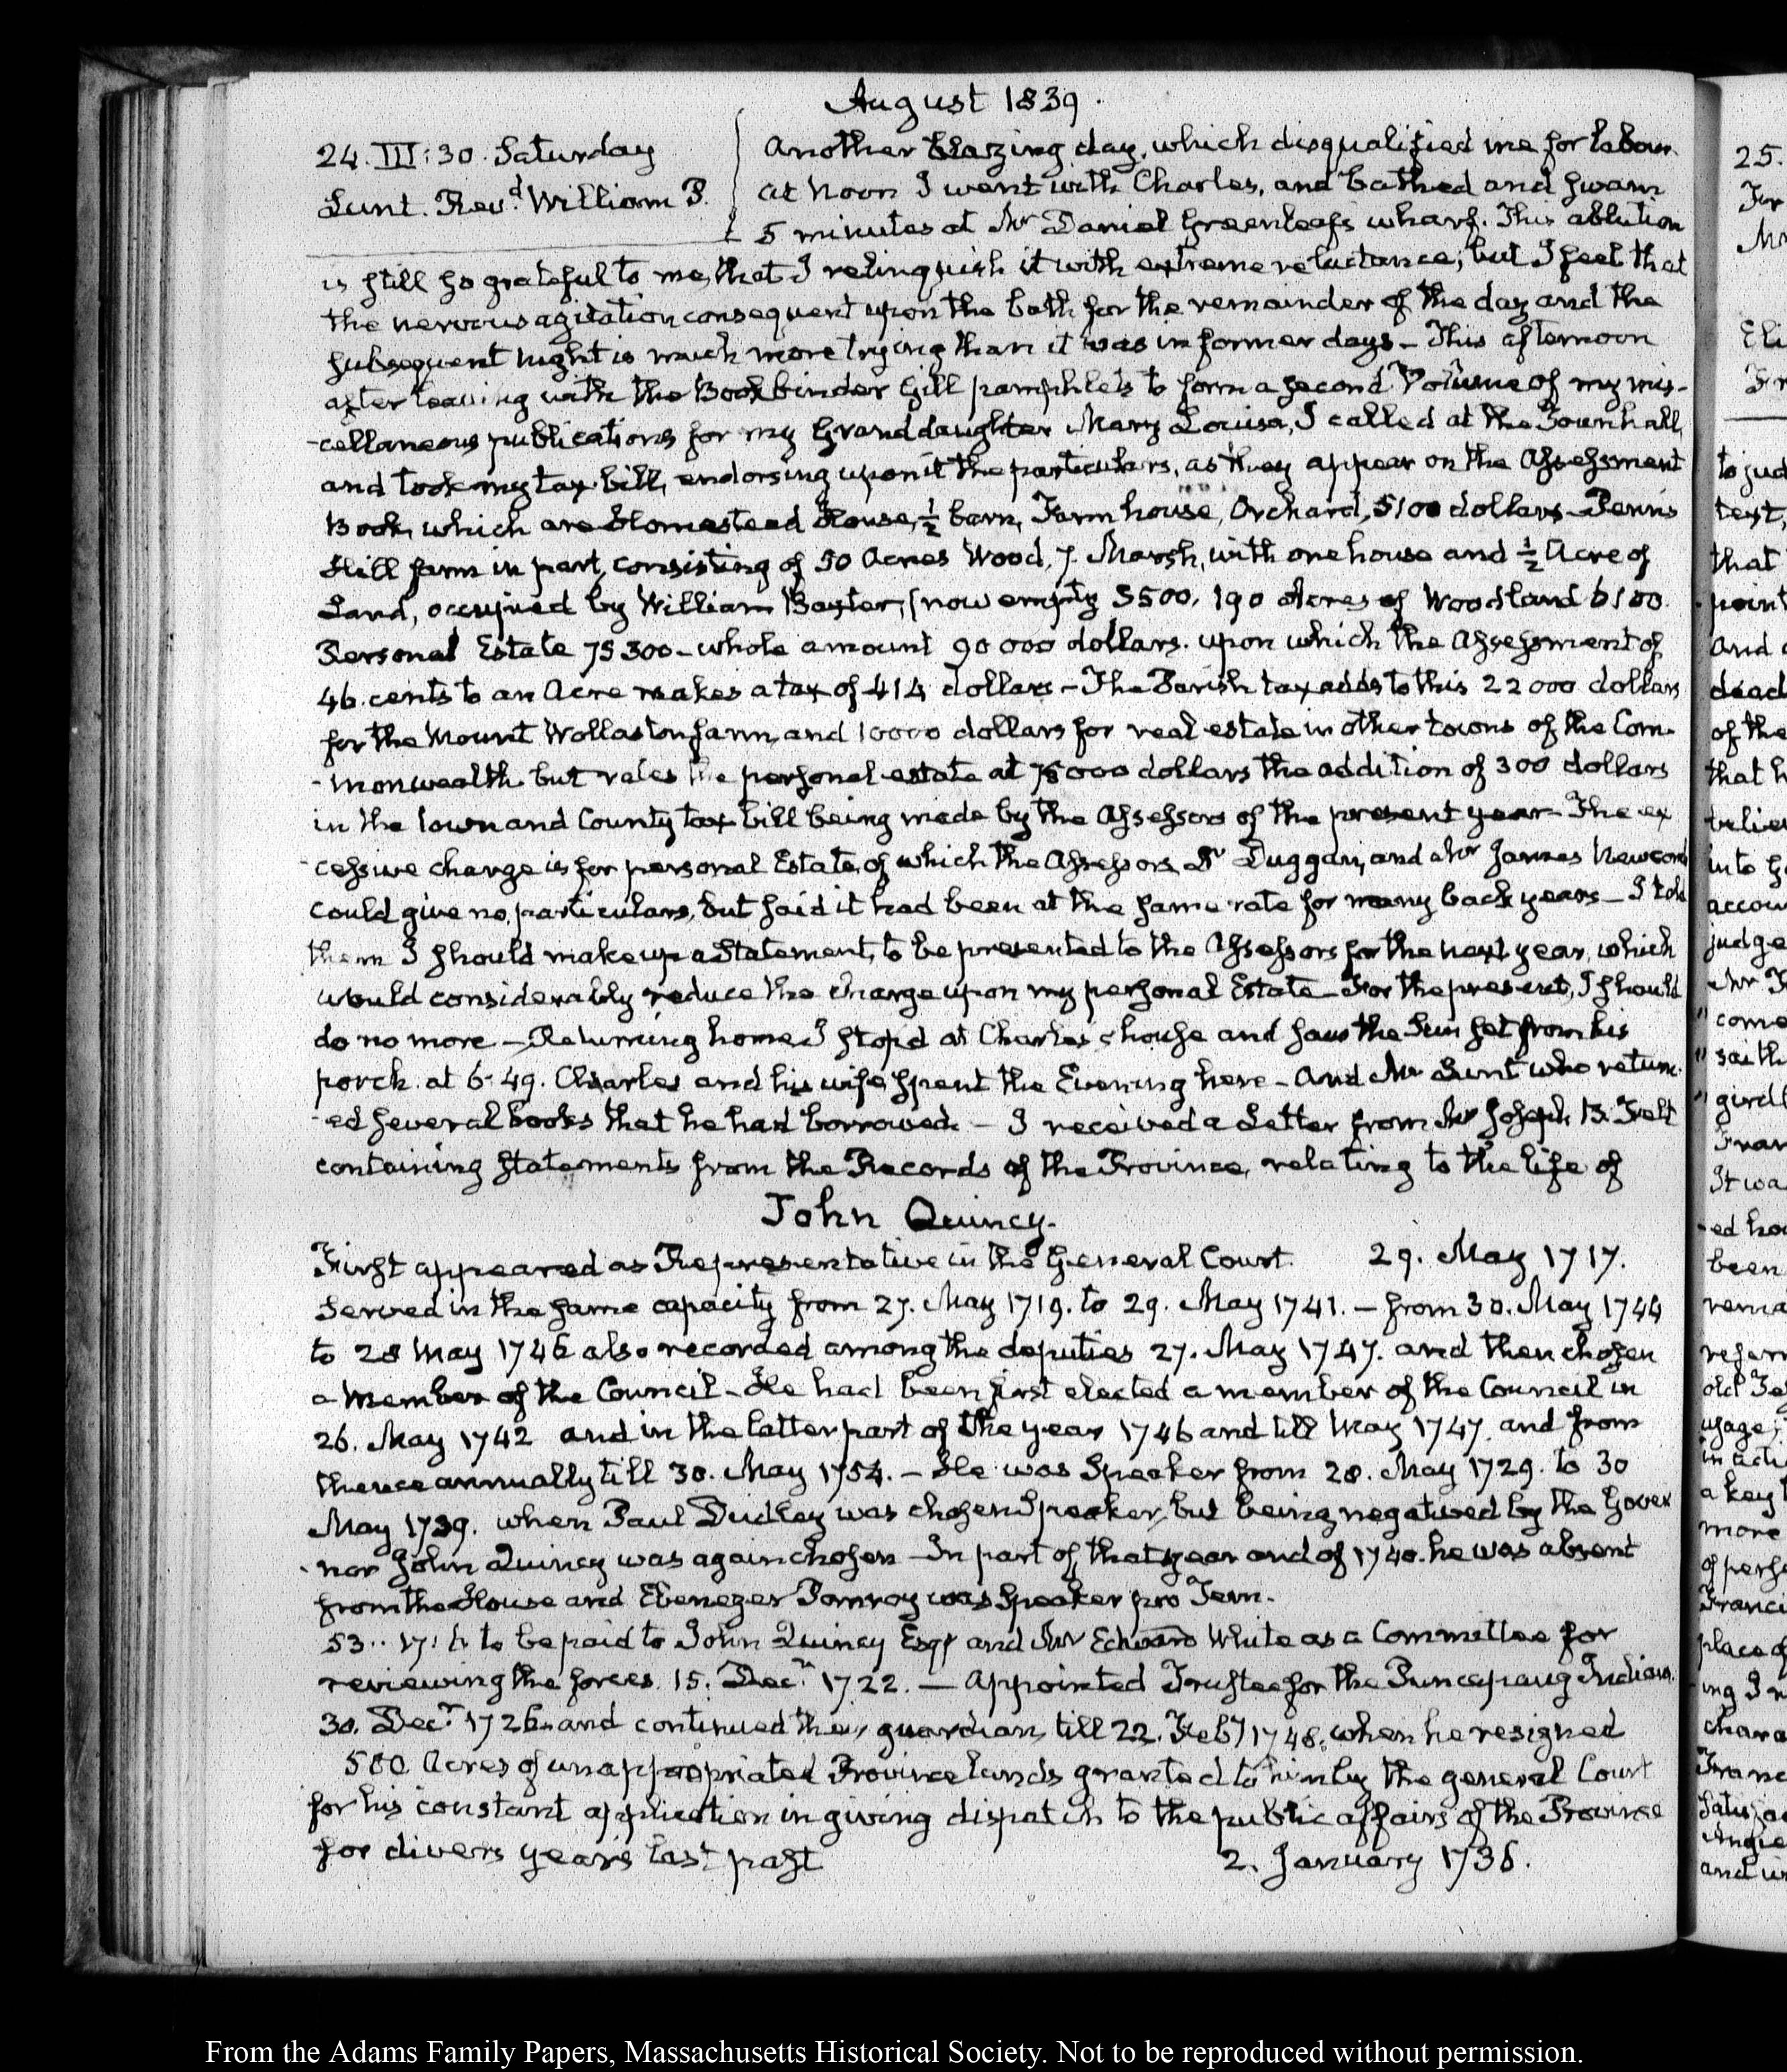 August 1839.
24. III:30. Saturday
Lunt. Revd. William P.
Another blazing day, which disqualified me for labour.
at Noon I went with Charles, and bathed and swam
5 minutes at Mr Daniel Greenleaf's wharf. This ablution
is still so grateful to me, that I relinquish it with extreme reluctance; but I feel that
the nervous agitation consequent upon the bath for the remainder of the day and the
subsequent night is much more trying than it was in former days – This afternoon
after leaving with the Bookbinder Gill pamphlets to form a second Volume of my mis-
-cellaneous publications for my Granddaughter Mary Louisa, I called at the Townhall,
and took my tax-bill, endorsing upon it the particulars, as they appear on the Assessment
Book, which are Homestead House, ½ barn, Farm house, Orchard, 5100 dollars – Penn's
Hill farm in part, consisting of 50 Acres Wood, 7. Marsh, with one house and ½ Acre of
Land, occupied by William Baxter, (now empty 3500, 190 Acres of Woodland 6100.
Personal Estate 75300 – whole amount 90 000 dollars. upon which the Assessment of
46. cents to an Acre makes a tax of 414 dollars – The Parish tax adds to this 22000 dollars
for the Mount Wollaston farm, and 10000 dollars for real estate in other towns of the Com-
-monwealth but rates the personal estate at 75000 dollars the addition of 300 dollars
in the Town and County tax bill being made by the Assessors of the present year – The ex
-cessive charge is for personal Estate, of which the Assessors Dr Duggan, and Mr James Newcomb
could give no particulars, but said it had been at the same rate for many back years – I told
them I should make up a Statement, to be presented to the Assessors for the next year, which
would considerably reduce the charge upon my personal Estate – For the present, I should
do no more – Returning home I stop'd at Charles's house and saw the Sun set from his
porch at 6-49. Charles and his wife spent the Evening here – And Mr Lunt who return-
-ed several books that he had borrowed – I received a Letter from Mr Joseph B. Felt
containing statements from the Records of the Province, relating to the life of
John Quincy.
First appeared as Representative in the General Court. 29. May 1717.
Served in the same capacity from 27. May 1719. to 29. May 1741. – from 30. May 1744
to 28 May 1746 also recorded among the deputies 27. May 1747. and then chosen
a Member of the Council – He had been first elected a member of the Council in
26. May 1742 and in the latter part of the year 1746 and till May 1747. and from
thence annually till 30. May 1754. – He was Speaker from 28. May 1729. to 30
May 1739. when Paul Dudley was chosen Speaker, but being negatived by the Gover
-nor John Quincy was again chosen – In part of that year and of 1740. he was absent
from the House and Ebenezer Pomroy was Speaker pro Tem.
53.. 17: to be paid to John Quincy Esqr and Mr Edward White as a Committee for
reviewing the forces. 15. Decr. 1722. – Appointed Trustee for the Puncapaug Indians.
30. Decr. 1726. and continued their guardian, till 22. Feby 1748. when he resigned
500. Acres of unappropriated Province lands granted to him by the general Court
for his constant application in giving dispatch to the public affairs of the Province
for divers years last past 2. January 1736.
25.
to jud
text,
that
point
and
dead
of the
that h
believ
into
accou
judge
Mr
" come
" saith
" girdl
Fran
It wa
-ed ho
been
rema
referr
old
usage;
in
a key
more
of perso
Franci
place of
ing
chara
Franc
and
From the Adams Family Papers, Massachusetts Historical Society. Not to be reproduced without permission.